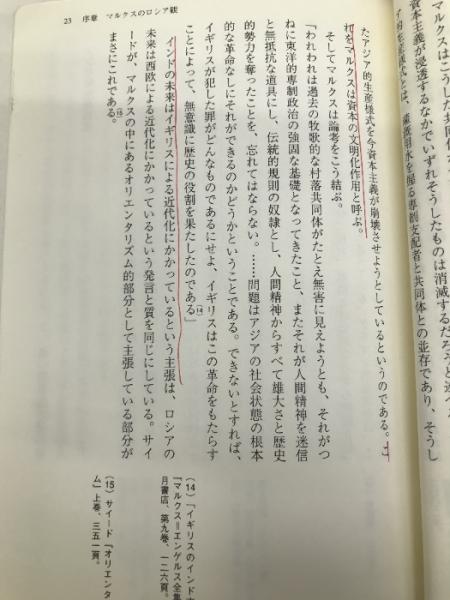 23 序章 マルクスのロシア観
マルクスはこうした共同
資本主義が浸透するなかでいずれそうしたものは消滅するだろうと述べ
を握る専制支配者と共同体との並存であり、そうし
たアジア的生産様式を今資本主義が崩壊させようとしているというのである。こ
れをマルクスは資本の文明化作用と呼ぶ。
そしてマルクスは論考をこう結ぶ。
「われわれは過去の牧歌的な村落共同体がたとえ無害に見えようとも、それがつ
ねに東洋的専制政治の強固な基礎となってきたこと、またそれが人間精神を迷信
と無抵抗な道具にし、伝統的規則の奴隷とし、人間精神からすべて雄大さと歴史
的勢力を奪ったことを、忘れてはならない。……問題はアジアの社会状態の根本
的な革命なしにそれができるのかどうかということである。できないとすれば、
イギリスが犯した罪がどんなものであるにせよ、イギリスはこの革命をもたらす
ことによって、無意識に歴史の役割を果たしたのである」(14)
インドの未来はイギリスによる近代化にかかっているという主張は、ロシアの
未来は西欧による近代化にかかっているという発言と質を同じにしている。サイ
ードが、マルクスの中にあるオリエンタリズム的部分として主張している部分が
まさにこれである。(15)
(14)「イギリスのインド
『マルクス=エンゲルス全集
月書店、第九巻、一二六頁。
(15) サイード『オリエンタ
ム』上巻、三五一頁。